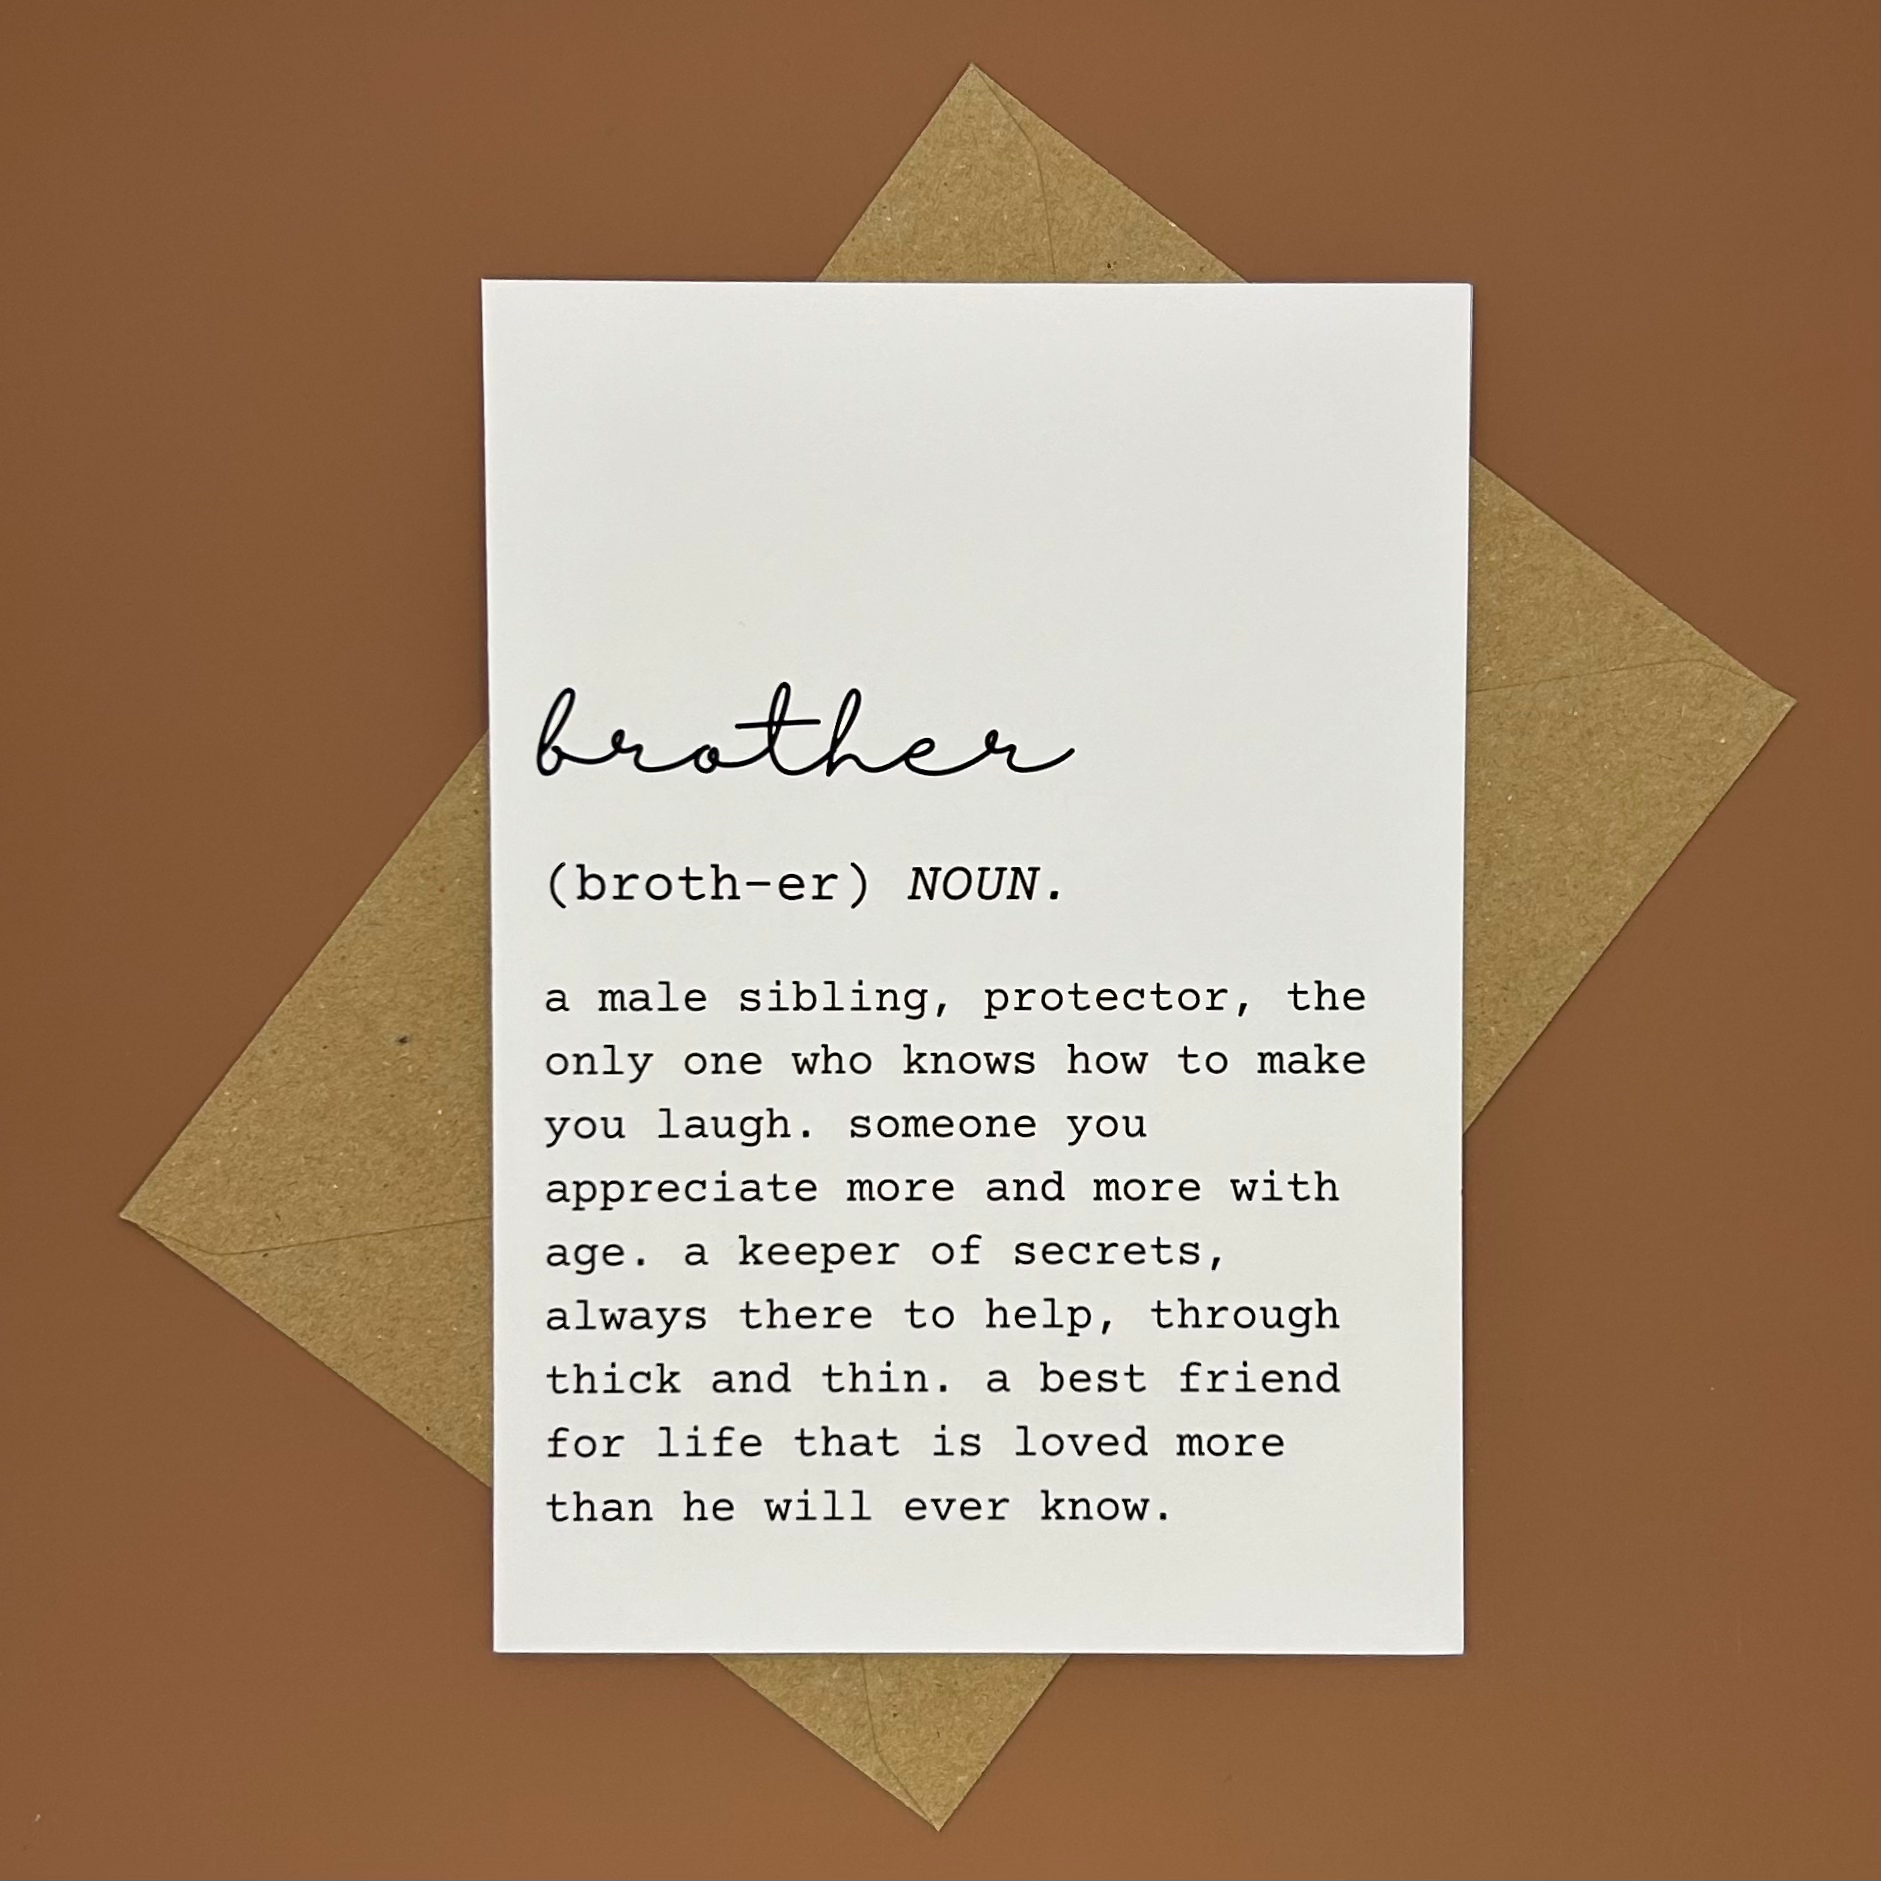 brother
(broth-er) NOUN.
a male sibling, protector, the
only one who knows how to make
you laugh. someone you
appreciate more and more with
age. a keeper of secrets,
always there to help, through
thick and thin. a best friend
for life that is loved more
than he will ever know.